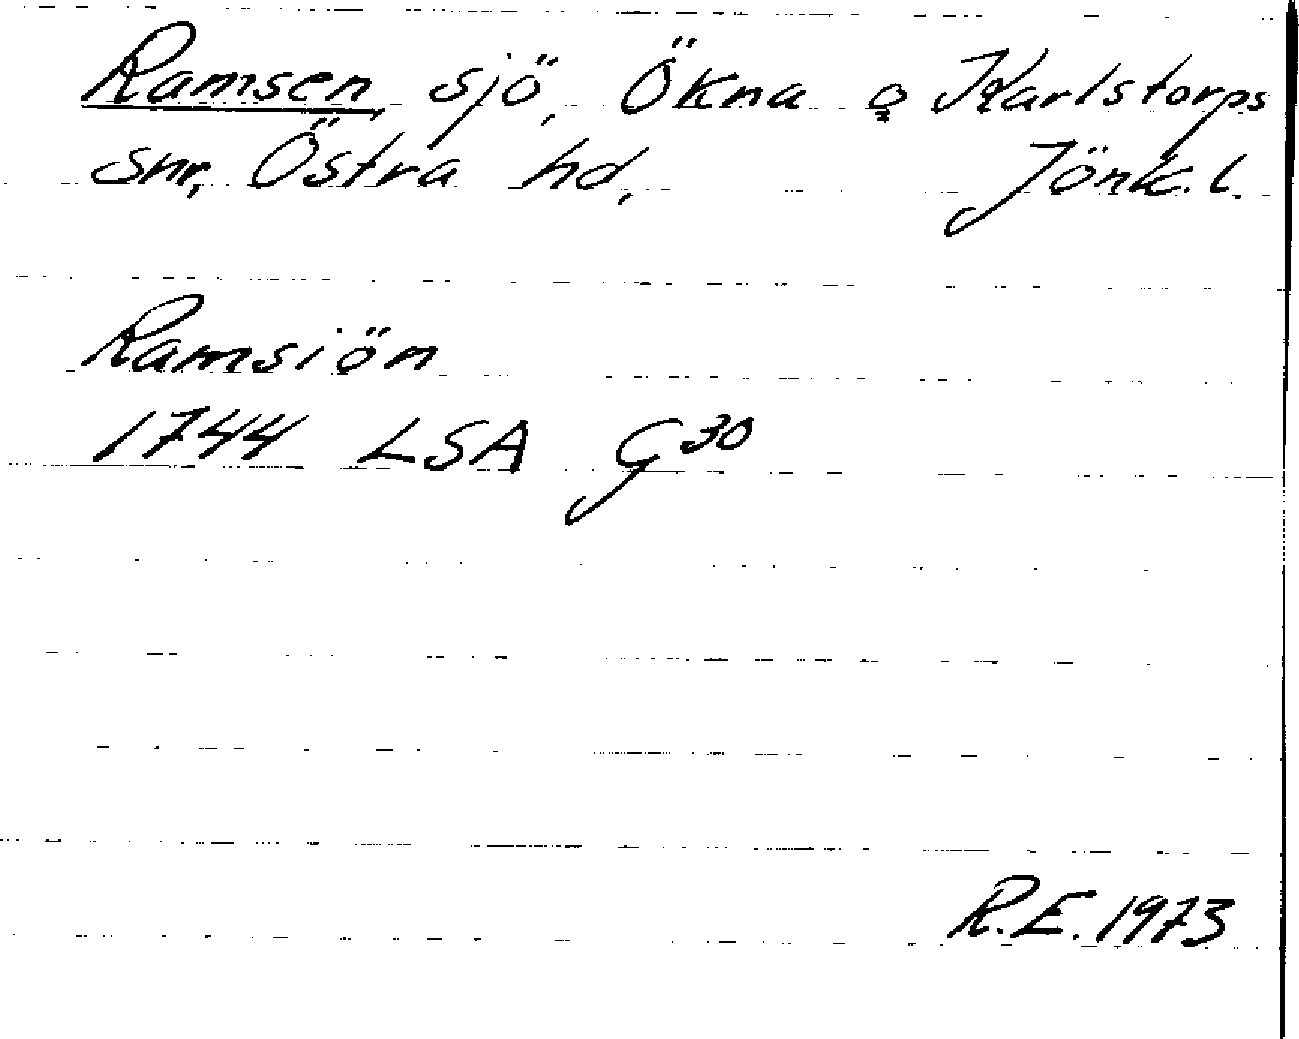 Ramsen, sjö, Ökna o Karlstorps
snr, Östra hd, Jönk. l.
Ramsiön
1744 LSA G30
R.E. 1973